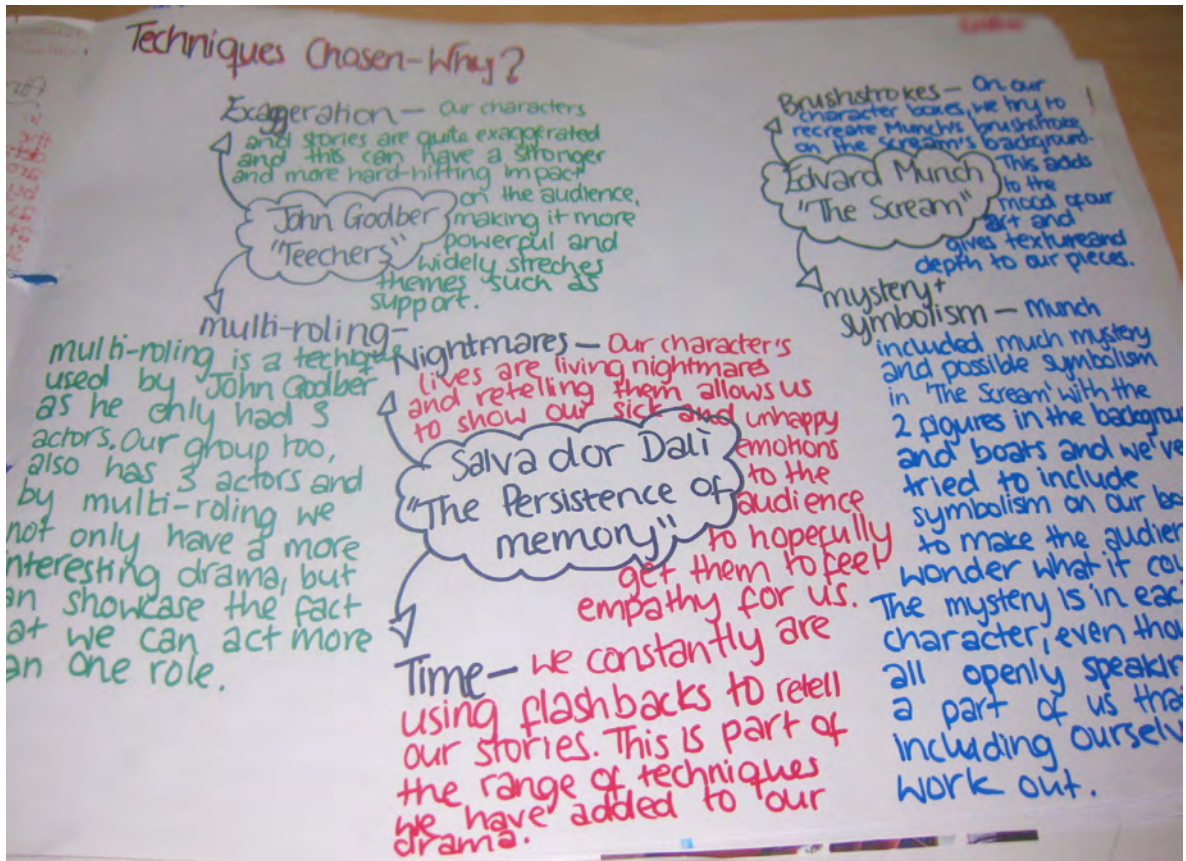 Techniques Chosen-Why?
Exaggeration - Our characters
and stories are quite exaggerated
and this can have a stronger
and more hard-hitting impact
on the audience,
making it more
powerful and
widely streches
themes such as
support.
John Godber
"Teechers"
multi-roling-
multi-roling is a techique
used by John Godber
as he only had 3
actors. Our group too,
also has 3 actors and
by multi-roling we
not only have a more
nteresting drama, but
an showcase the fact
at we can act more
an one role.
Nightmares - Our character's
lives are living nightmares
and retelling them allows us
to show our sick and unhappy
emotions
to the
audience
to hopefully
get them to feel
empathy for us.
Salvador Dalì
"The Persistence of
memory"
Time - we constantly are
using flashbacks to retell
our stories. This is part of
the range of techniques
we have added to our
drama.
Brushstrokes - On our
character boxes, we try to
recreate Munch's brushstroke
on the Scream's background.
This adds
to the
mood of our
art and
gives texture and
depth to our pieces.
Edvard Munch
"The Scream"
mystery +
symbolism - Munch
included much mystery
and possible symbolism
in 'The Scream' with the
2 figures in the backgrou
and boats and we've
tried to include
symbolism on our bo
to make the audien
wonder what it cou
The mystery is in eac
character, even thou
all openly speakin
a part of us tha
including ourselv
work out.